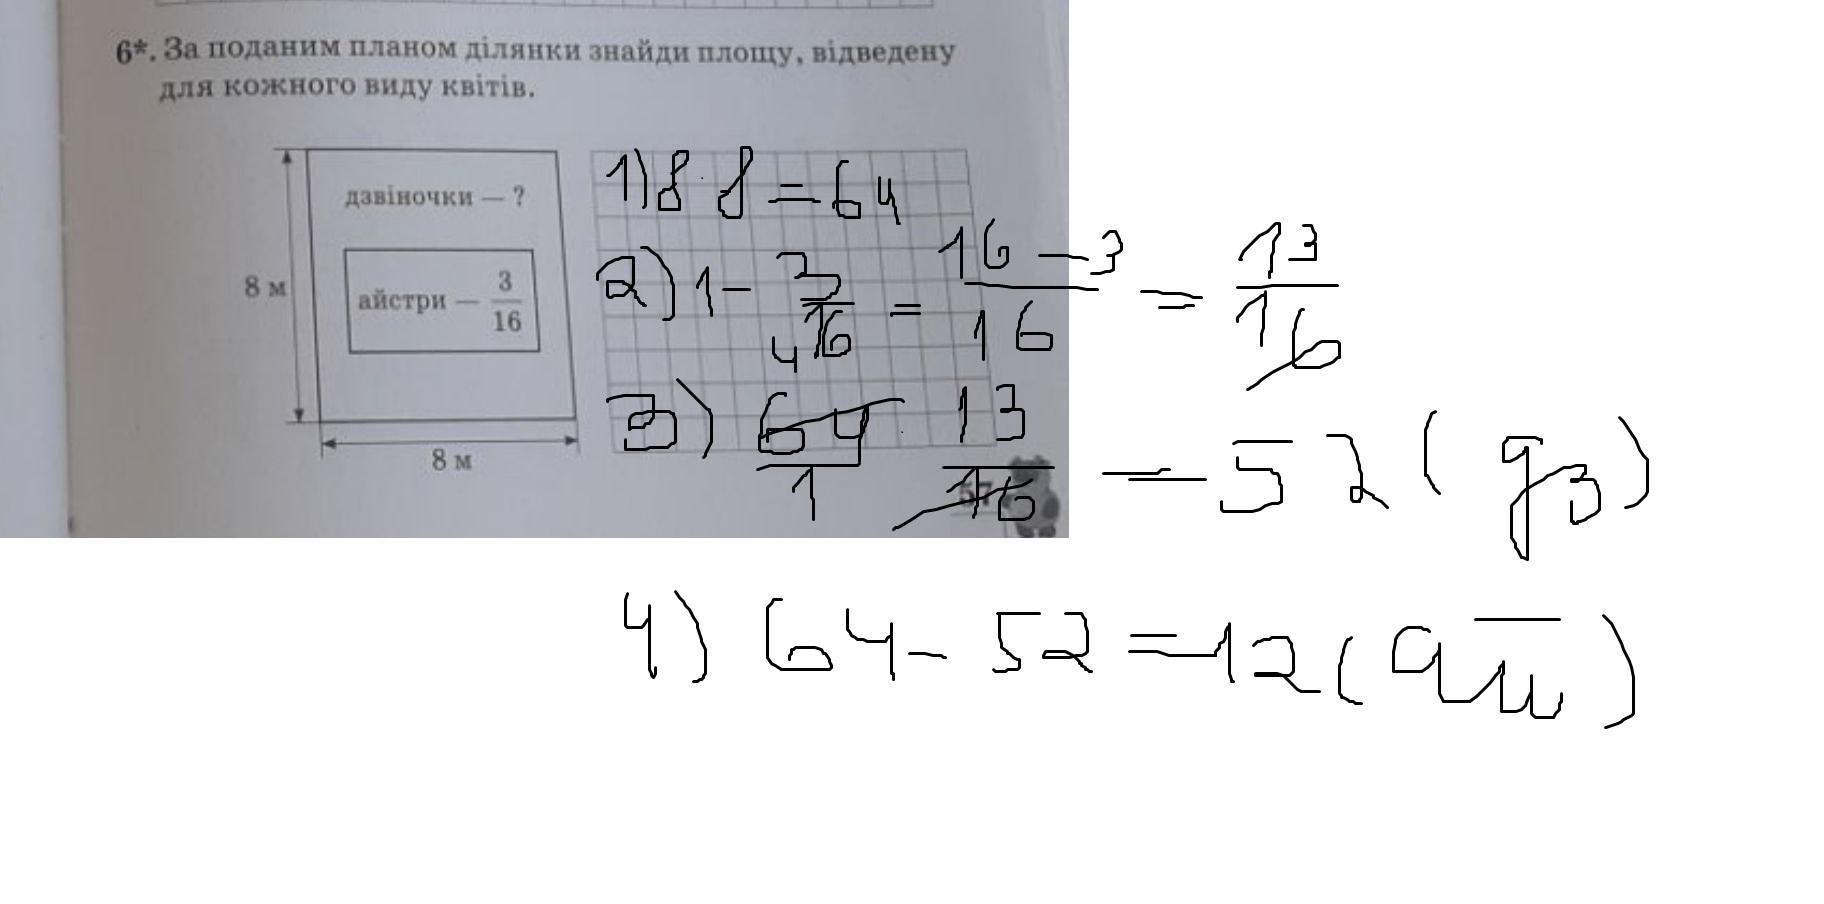 6*. За поданим планом ділянки знайди площу, відведену
для кожного виду квітів.
дзвіночки — ?
айстри — 3/16
8 м
8 м
57
1) 8 · 8 = 64
2) 1 - 3/16 = 16 - 3/16 = 13/16
3) 64/1 · 13/16 = 52 (дз)
4
4) 64 - 52 = 12 (айш)